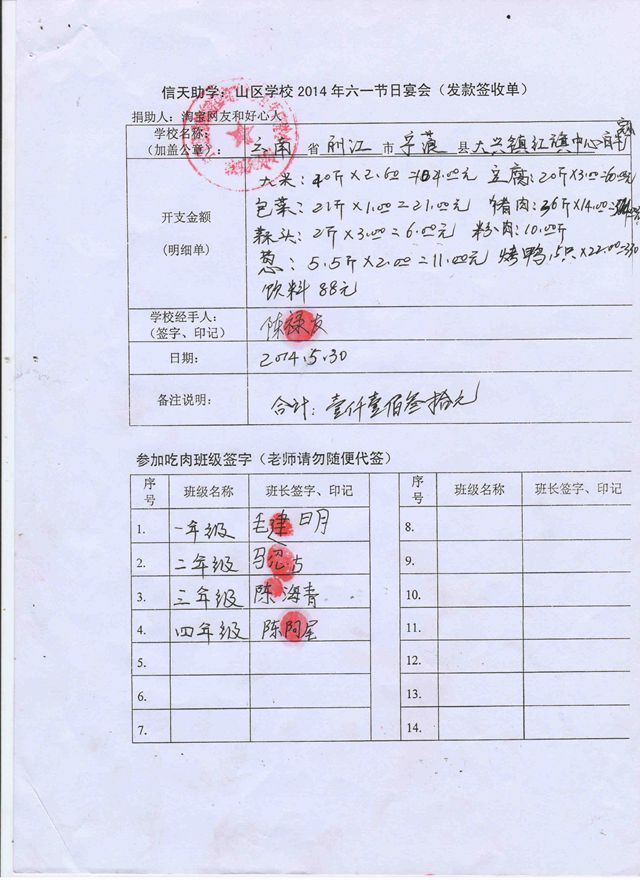 信天助学：山区学校 2014 年六一节日宴会（发款签收单）
捐助人：淘宝网友和好心人
学校名称：
（加盖公章）：
云南 省 丽江 市 宁蒗 县 大兴镇红旗中心
开支金额
(明细单)
大米：40斤×2.60=104.00元 豆腐：20斤×3.00=60.00元
包菜：21斤×1.00=21.00元 猪肉：36斤×14.00=
蒜头：2斤×3.00=6.00元 粉肉：10.00斤
葱：5.5斤×2.00=11.00元 烤鸭 15只×22.00=330
饮料 88元
学校经手人：
（签字、印记）
陈禄友
日期：
2014.5.30
备注说明：
合计：壹仟壹佰叁拾元
参加吃肉班级签字（老师请勿随便代签）
序号 班级名称 班长签字、印记 序号 班级名称 班长签字、印记
1. 一年级 毛建明 8.
2. 二年级 马 9.
3. 三年级 陈海青 10.
4 四年级 陈阿星 11.
5. 12.
6. 13.
7. 14.